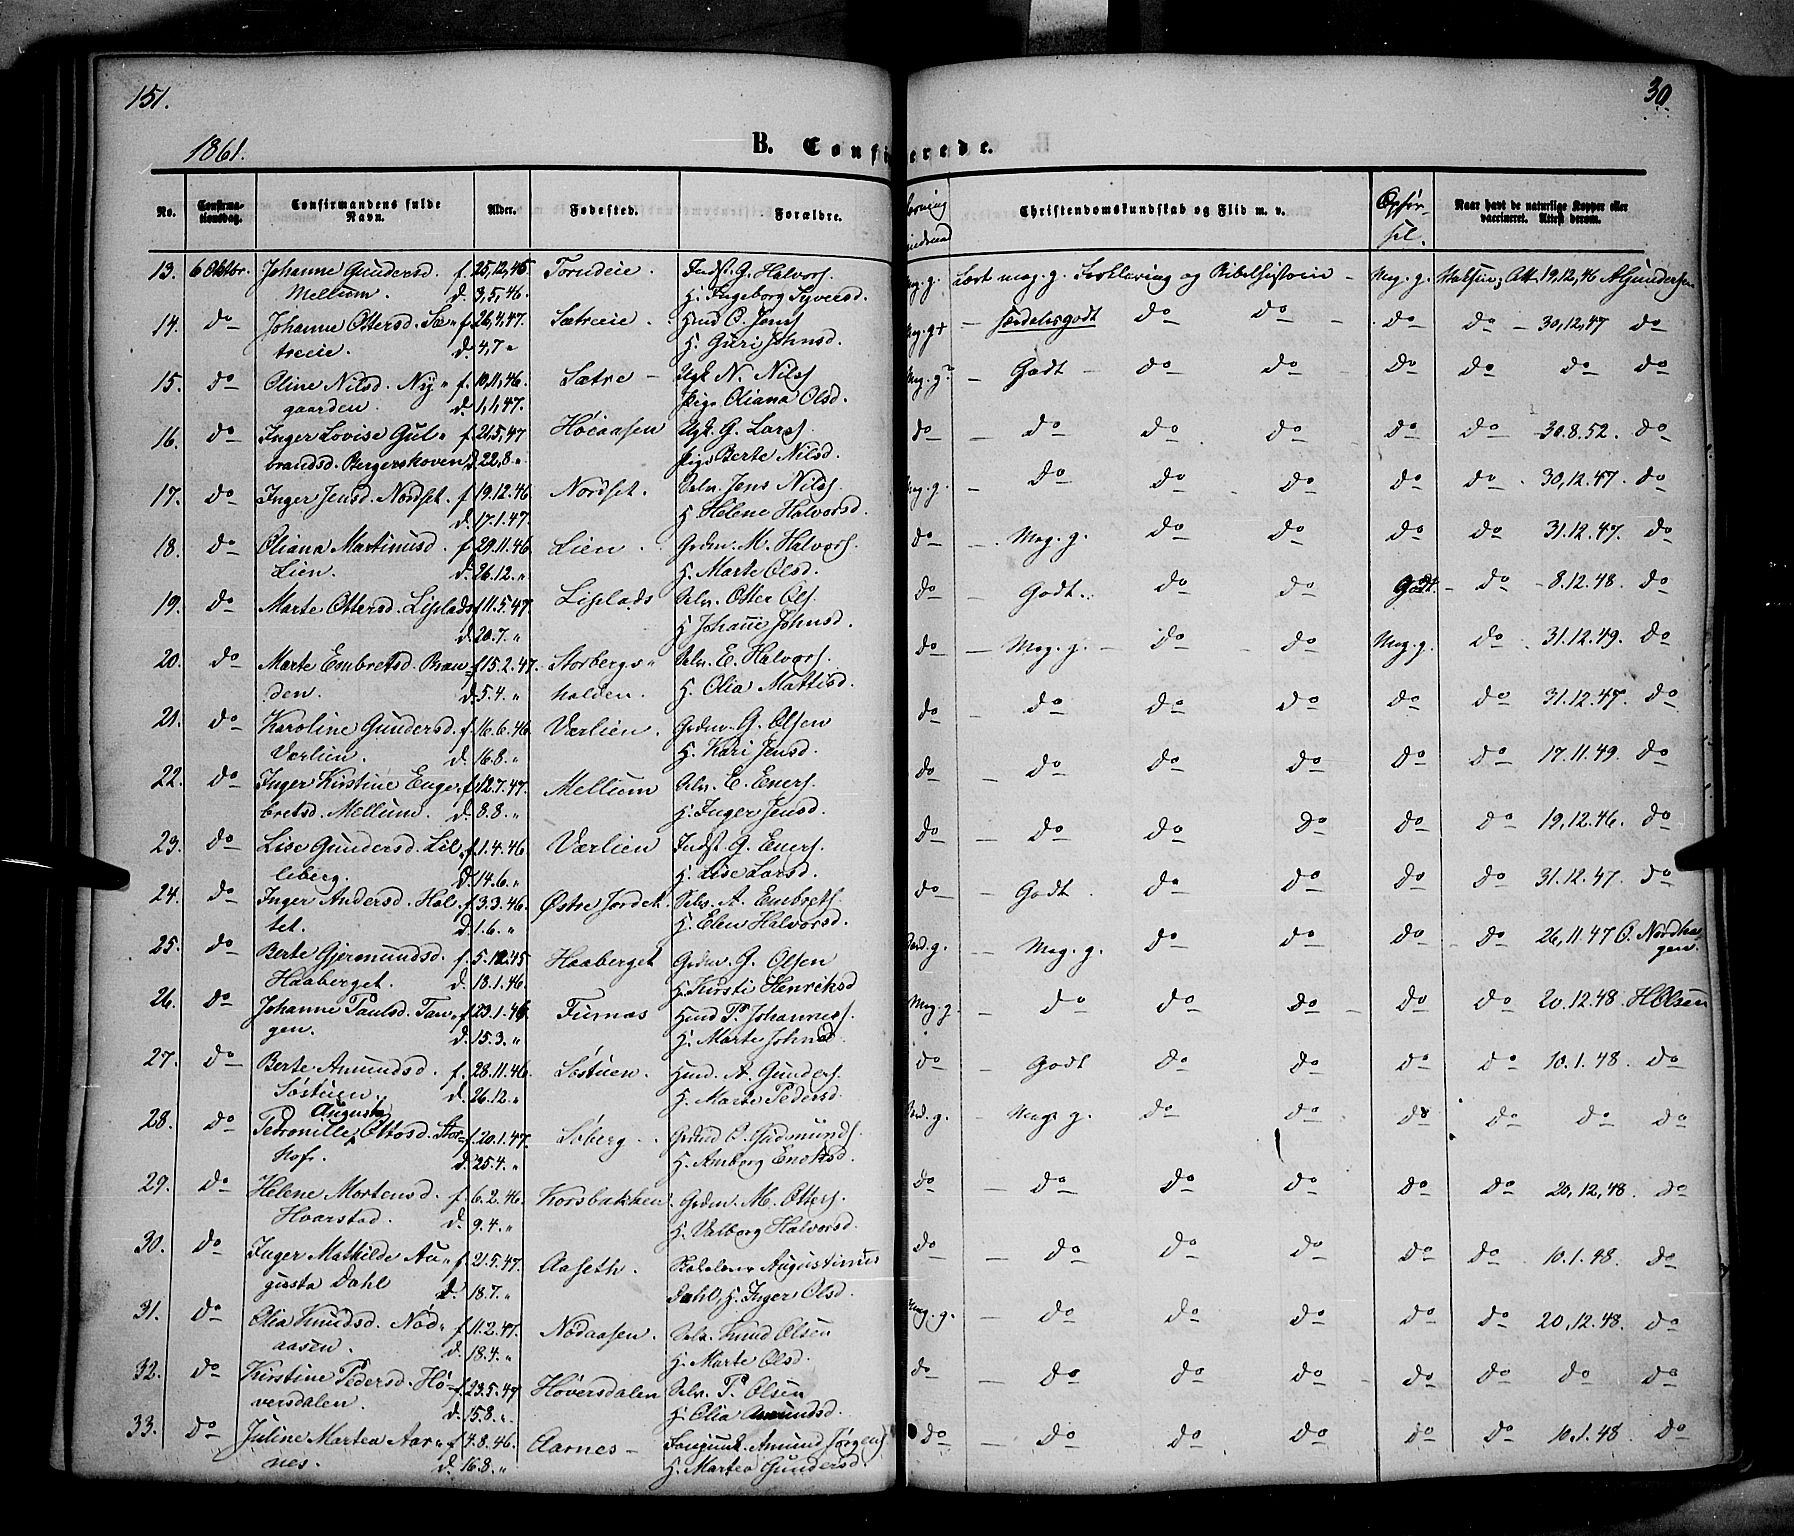 151.
30
1861.
B. Confirmerede.
No.
Confirma-
tionsdag.
Confirmandens fulde
Navn.
Alder.
Fødested.
Forældre.
Christendomskundskab og Flid m. v.
Opfør-
sel.
Naar havt de naturlige Kopper eller
vaccineret. Attest derom.
13. 6 Oktbr. Johanne Gundersd. f. 25,12,45 Torudeie, Indst. G. Halvors. Meg. g. Læst meg. g. Forklaring og Bibelhistorie - Meg. g. Vaksin; Att. 19,12,46 AGundersen
Mellum. d. 3,5,46. H. Ingeborg Syversd.
14. do Johanne Ottersd. Sæ- f. 26,4,47. Sætreie. Hmd O. Jens. Meg. g+ - særdelesgodt do do do do - 30,12,47 do
treeie. d. 4,7 " H. Guri Johnsd.
15. do Oline Nilsd. Ny- f. 10,11,46. Sætre - Ugk. N. Nils. Meg. g? - Godt - do do do do do do
gaarden. d. 1,1,47. Pige Oliana Olsd.
16. do Inger Lovise Gul- f. 21,5,47 Høiaasen Ugk. G. Lars. do - do do do do do - 30.8.52. do
brandsd. Bergerskoven d. 22,8 " Pige Berte Nilsd.
17. do Inger Jensd. Nordset. f. 19.12.46 Nordset. Selv. Jens Nils. Meg. g. - do do do do do 30,12.47. do
d. 17.1.47. H. Helene Halvorsd.
18. do Oliana Martinusd. f. 29.11.46. Lien. Grdm. M. Halvors. do - Meg. g. do do do do 31.12.47. do
Lien. d. 26.12. " H. Marte Olsd.
19. do Marte Ottersd. Lisplads f. 11.5.47. Lisplads Selv. Otter Ols. do - Godt. do do Godt - do - 8.12.48. do
d. 20.7. " H. Johanne Johnsd.
20. do Marte Embretsd. Bræn- f. 15.2.47. Storbergs- Selv. E. Halvors. do - Meg. g. - do - do Meg. g. do 31.12.49. do
den. d. 5.4. " halden. H. Olia Mattisd.
21. do Karoline Gundersd. f. 16.6.46 Værlien. Grdm. G. Olsen do - do do do do do 31.12.47. do
Værlien. d. 16.8. " H. Kari Jensd.
22. do Inger Kirstine Enge- f. 12.7.47. Mellum Selv. E. Eners. do - do do do do do 17.11.49. do
bretsd. Mellum. d. 8.8. " H. Inger Jensd.
23. do Lise Gundersd. Lil- f. 1.4.46 Værlien Indst. G. Eners. do - do do do do do 19,12.46. do
leberg. d. 14.6. " H. Lise Larsd.
24. do Inger Andersd. Hol- f. 3.3.46. Østre Jordet Selv. A. Embrets. do - Godt. do do do do 31.12.47. do
tet. d. 1.6. " H. Elen Halvorsd.
25. do Berte Gjermundsd. f. 5.12.45 Haaberget Grdm. G. Olsen - Meg. g. do do do do 26,11.47 O. Nordha-
Haaberget. d. 18.1.46. H. Kirsti Henriksd gen.
26. do Johanne Paulsd. Tan- f. 23.1.46 Furnæs Hmd P. Johannes. Meg. g. - do do do do do 20.12.48. HOlsen
gen. d. 15.3. " H. Marte Johnsd.
27. do Berte Amundsd. f. 28.11.46. Søstuen. Hmd. A. Gunders. do - Godt do do do do 10.1.48. do
Søstuen. d. 26.12. " H. Marte Pedersd.
28. do Augusta
Petronille Ottosd. Stor- f. 20.1.47. Søberg. Grdmd O. Gudmunds. - Meg. g. do do do do do do
hofr. d. 25.4. " H. Amberg Enoksd.
29. do Helene Mortensd. f. 6.2.46. Korsbakken. Grdm. M. Otters. do - do do do do do 20,12,48. do
Haarstad. d. 9.4. " H. Valborg Halvorsd.
30. do Inger Mathilde Au- f. 21.5.47. Aaseth. Skolelærer Augustinus do - do do do do do 10.1.48. do
gusta Dahl d. 18.7. " Dahl, H. Inger Olsd.
31. do Olia Knudsd. Nød- f. 11.2.47. Nødaasen. Selv. Knud Olsen Meg. g. - do do do do do 20,12.48. do
aasen. d. 18.4. " H. Marte Olsd.
32. do Kirstine Pedersd. Hø- f. 23.5.47 Høversdalen Selv. P. Olsen do - do do do do do do do
versdalen. d. 15.8. " H. Olia Amundsd.
33. do Juline Martea Aar- f. 4.8.46. Aarnes - Amund Jørgens. do - do do do do do 10.1.48 do
nes. d. 16.8. " H. Martea Gundersd.